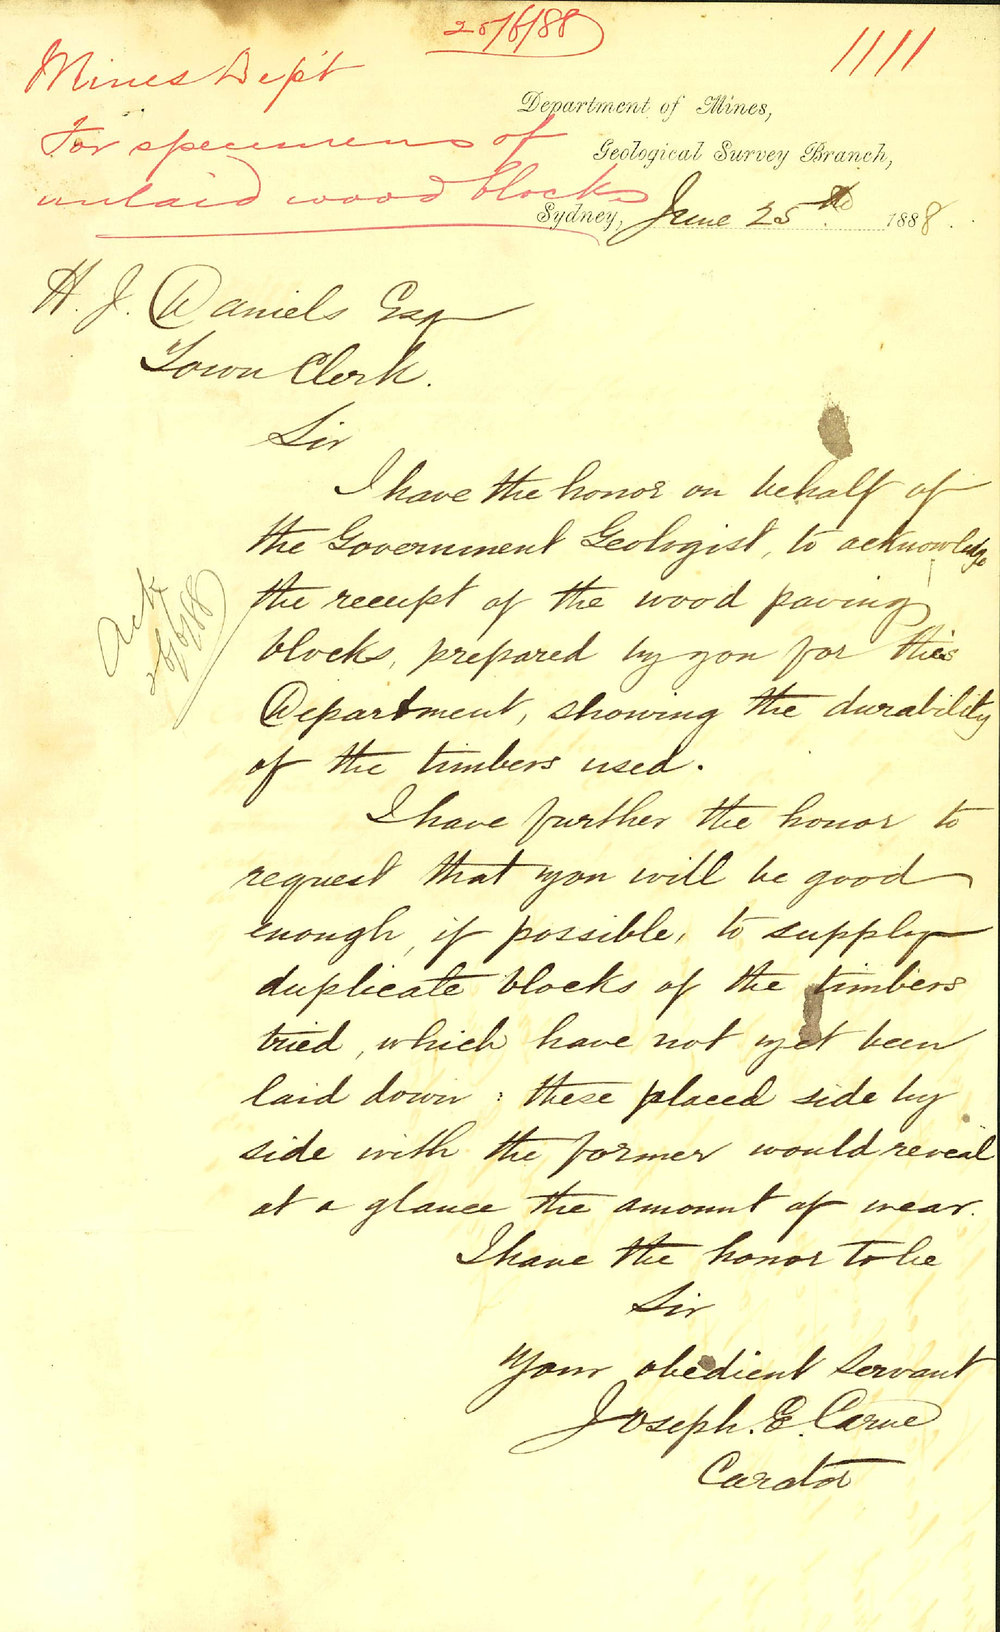 25/6/88
1111
Mines Dep't
For specimens of
unlaid wood blocks
Department of Mines,
Geological Survey Branch,
Sydney, June 25th 1888.
H. J. Daniels Esq
Town Clerk.
Sir
I have the honor on behalf of
the Government Geologist, to acknowledge
the receipt of the wood paving
blocks, prepared by you for this
Department, showing the durability
of the timbers used.
Ack
26/6/88
I have further the honor to
request that you will be good
enough, if possible, to supply
duplicate blocks of the timbers
tried, which have not yet been
laid down: these placed side by
side with the former would reveal
at a glance the amount of wear.
I have the honor to be
Sir
Your obedient servant
Joseph. E. Carne
Curator